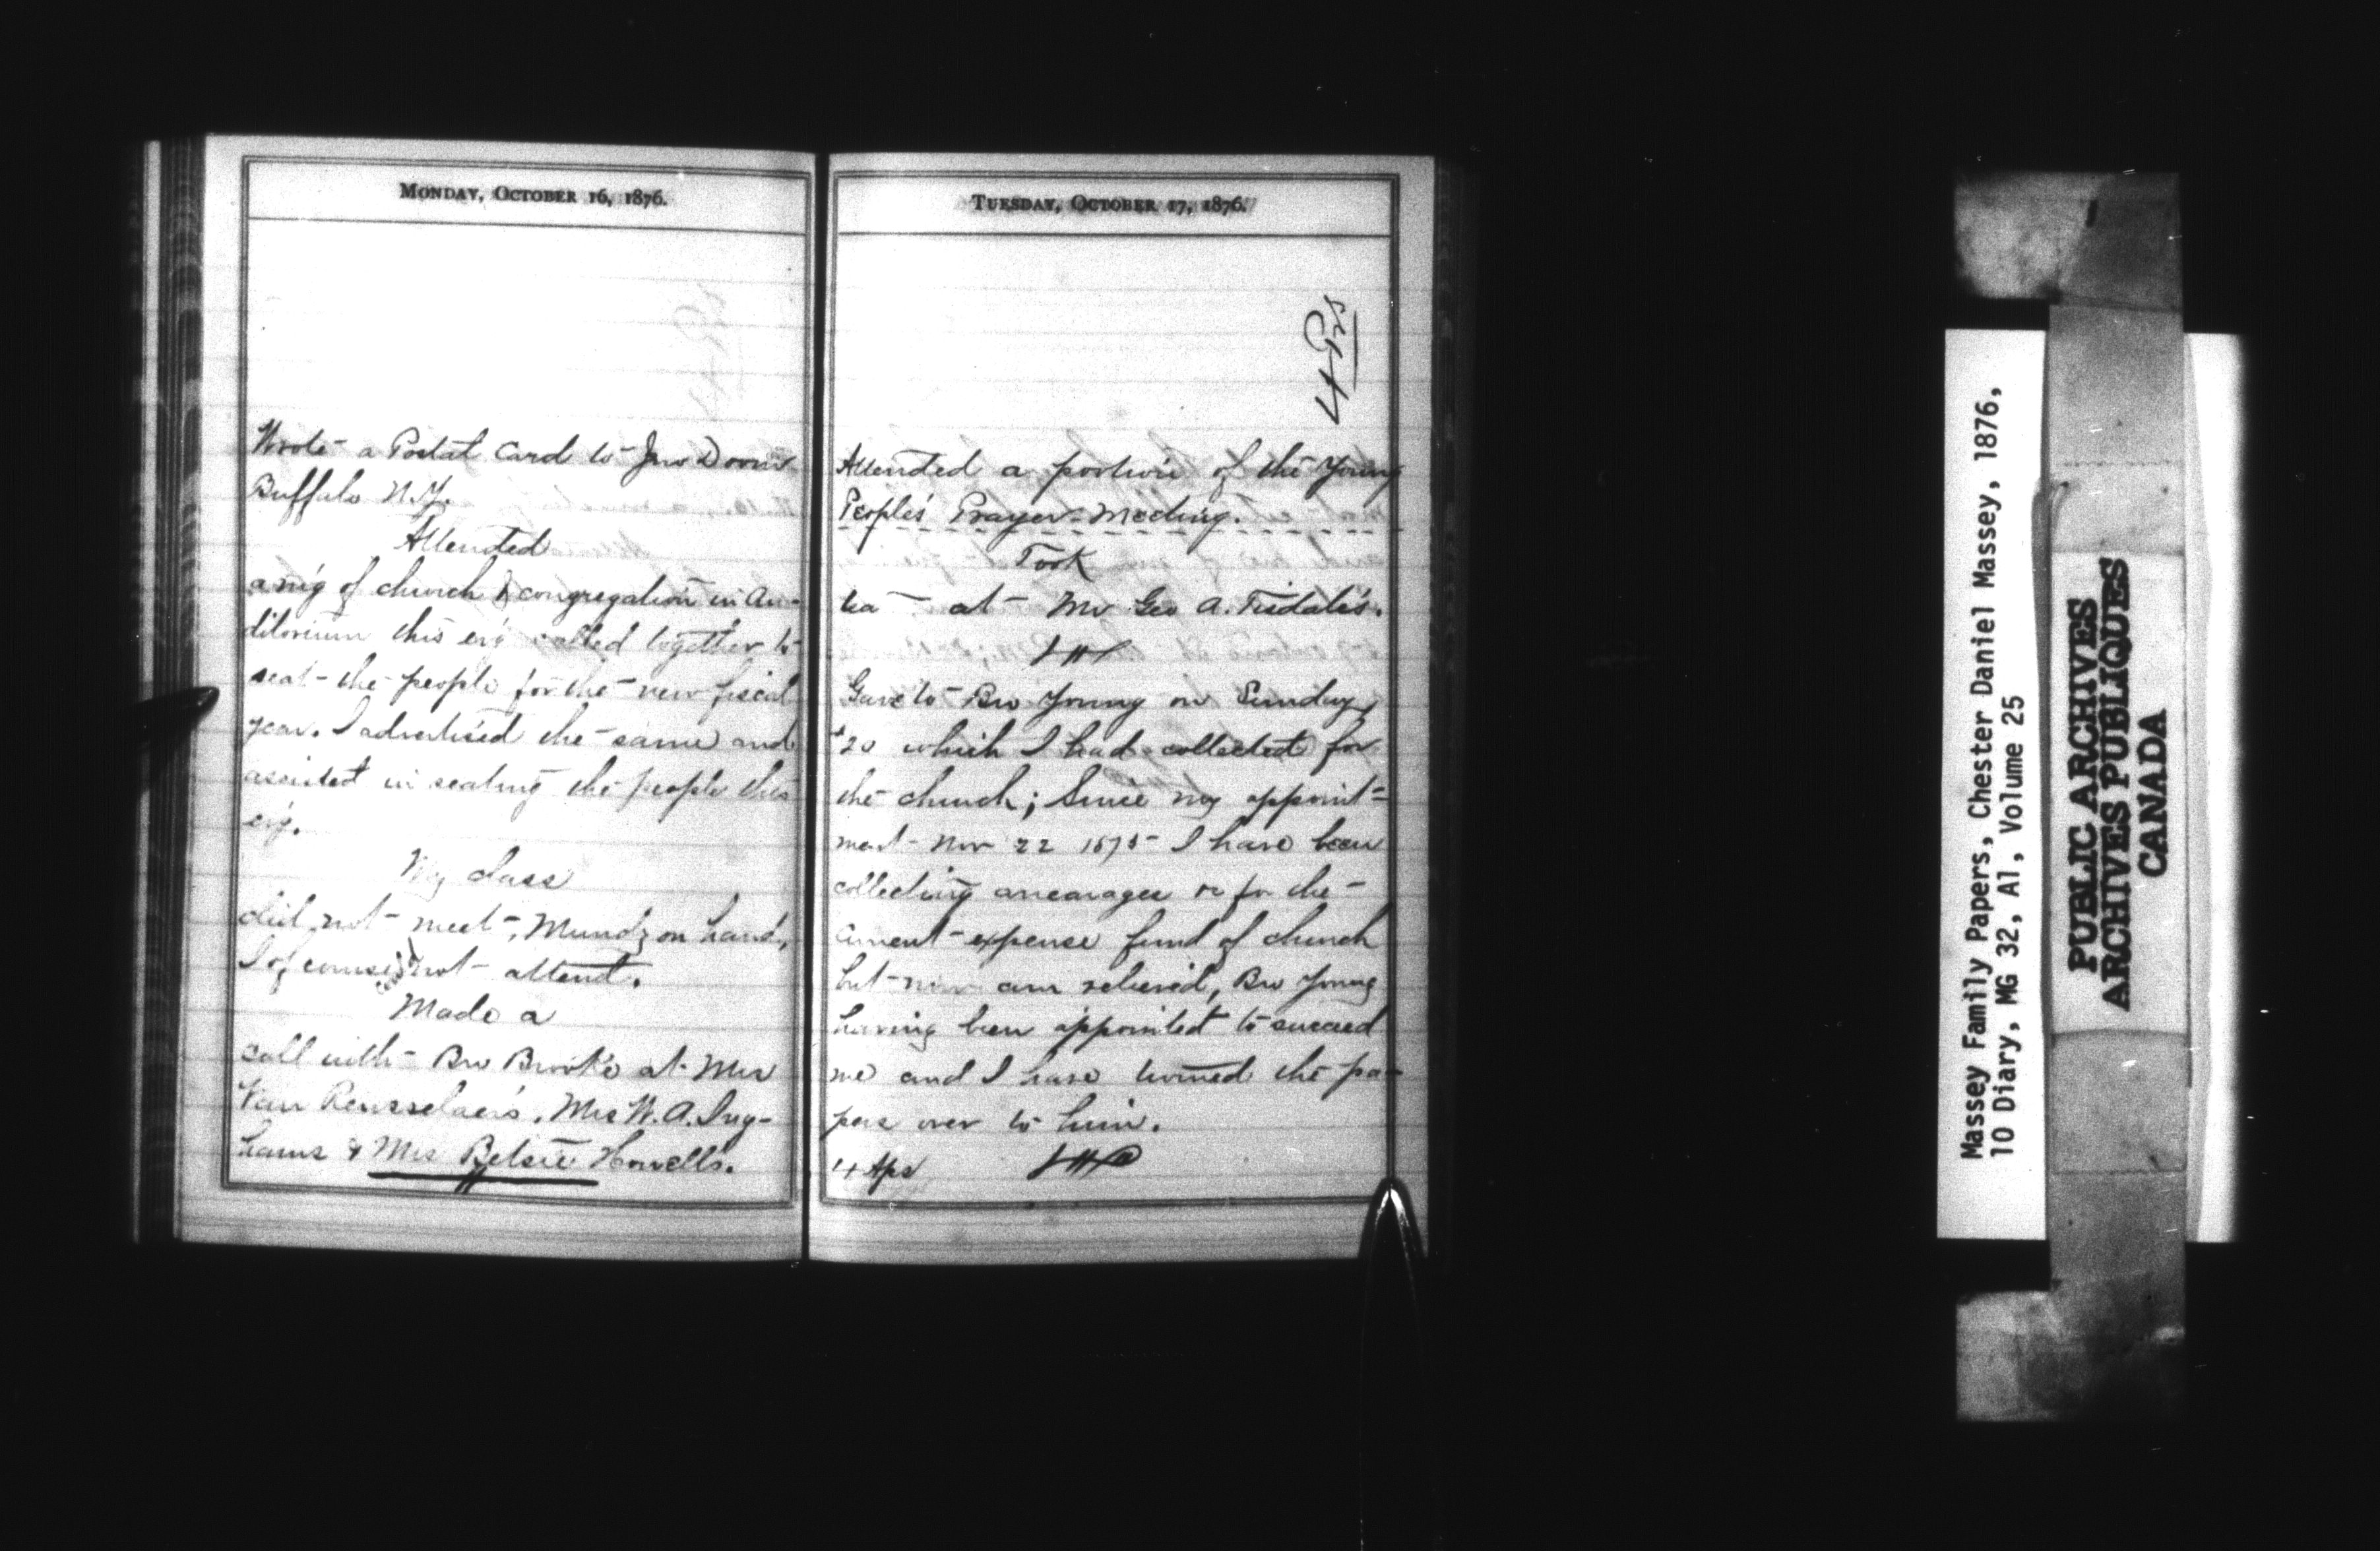 MONDAY, OCTOBER 16, 1876.
Wrote a Postal Card to Jno
Buffalo N.Y.
Attended
a m'g of church & congregation in Au-
ditorium this ev'g called together to
seat the people for the new fiscal
year. I advertised the same and
assisted in seating the people this
ev'g.
My class
did not meet,
I of course not attend.
Made a
call with Bro Brooke at Mrs
Van Rensselaer's, Mrs W. A. Ing-
hams & Mrs Betsie Howells.
TUESDAY, OCTOBER 17, 1876.
4 Prs
Attended a portion of the Young
People's Prayer-Meeting.
Took
tea at Mr Geo A. Tisdale's.
Gave to Bro Young on Sunday,
$20 which I had collected for
the church; Since my appoint=
ment Nov 22 1875 I have been
collecting arrearages or for the
current expense fund of church
but now am relieved, Bro Young
having been appointed to succeed
me and I have turned the pa-
pers over to him.
4
Massey Family Papers, Chester Daniel Massey, 1876,
10 Diary, MG 32, A1, Volume 25
PUBLIC ARCHIVES
ARCHIVES PUBLIQUES
CANADA